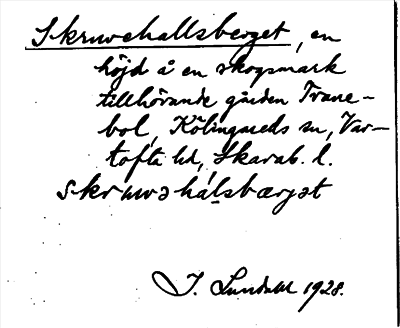 Skruvehallsberget, en
höjd å en skogsmark
tillhörande gården Trane-
bol, Kölingareds sn, Var-
tofta hd, Skarab. l.
skruvəhálsbærjət
I. Lundahl 1928.